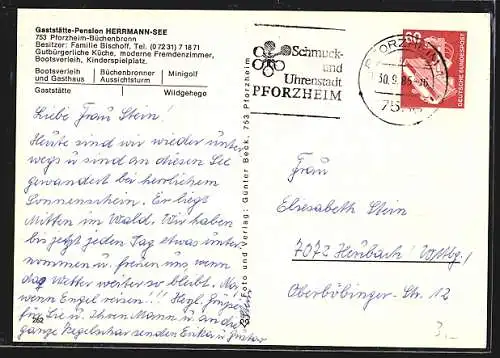 Gaststätte-Pension HERRMANN-SEE
753 Pforzheim-Büchenbronn
Besitzer: Familie Bischoff, Tel. (0 72 31) 7 18 71
Gutbürgerliche Küche, moderne Fremdenzimmer,
Bootsverleih, Kinderspielplatz.
Bootsverleih und Gasthaus
Büchenbronner Aussichtsturm
Minigolf
Gaststätte
Wildgehego
Liebe Frau Stein!
Heute sind wir wieder unter
wegs u sind an diesen See
gewandert bei herrlichem
Sonnenschein. Er liegt
Mitten im Wald. Wir haben
bis jetzt jeden Tag etwas unter
nommen u. freuen uns, wenn
das Wetter weiter so bleibt. Na,
wenn Engel reisen!!! Herzl. Grüße
für Sie u. Ihren Mann u. an die
ganze Kegelschar senden Erika u. Gustav
262
Foto und Verlag: Günter Beck, 753 Pforzheim
Schmuck-
und
Uhrenstadt
PFORZHEIM
PFORZHEIM
30.9.85
75
60
DEUTSCHE BUNDESPOST
Frau
Elisabeth Stein
7072 Heubach/
Oberböbinger-Str. 12
3,-